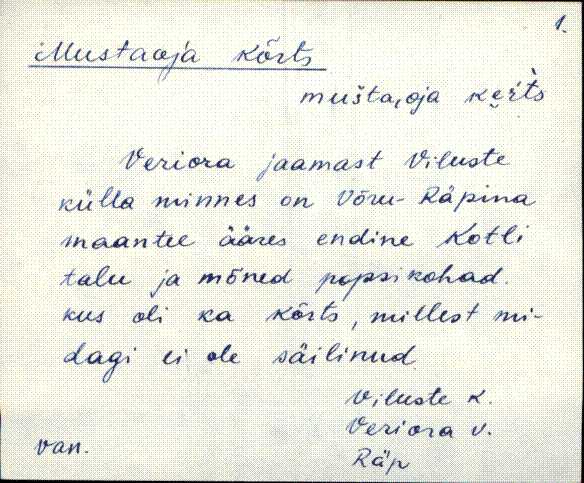 1.
Mustaoja kõrts
mušta,oja ke̮r̀ts
Veriora jaamast Viluste
külla minnes on Võru-Räpina
maantee ääres endine Kotli
talu ja mõned popsikohad.
kus oli ka kõrts, millest mi-
dagi ei ole säilinud
Viluste k.
Veriora v.
van.
Räp